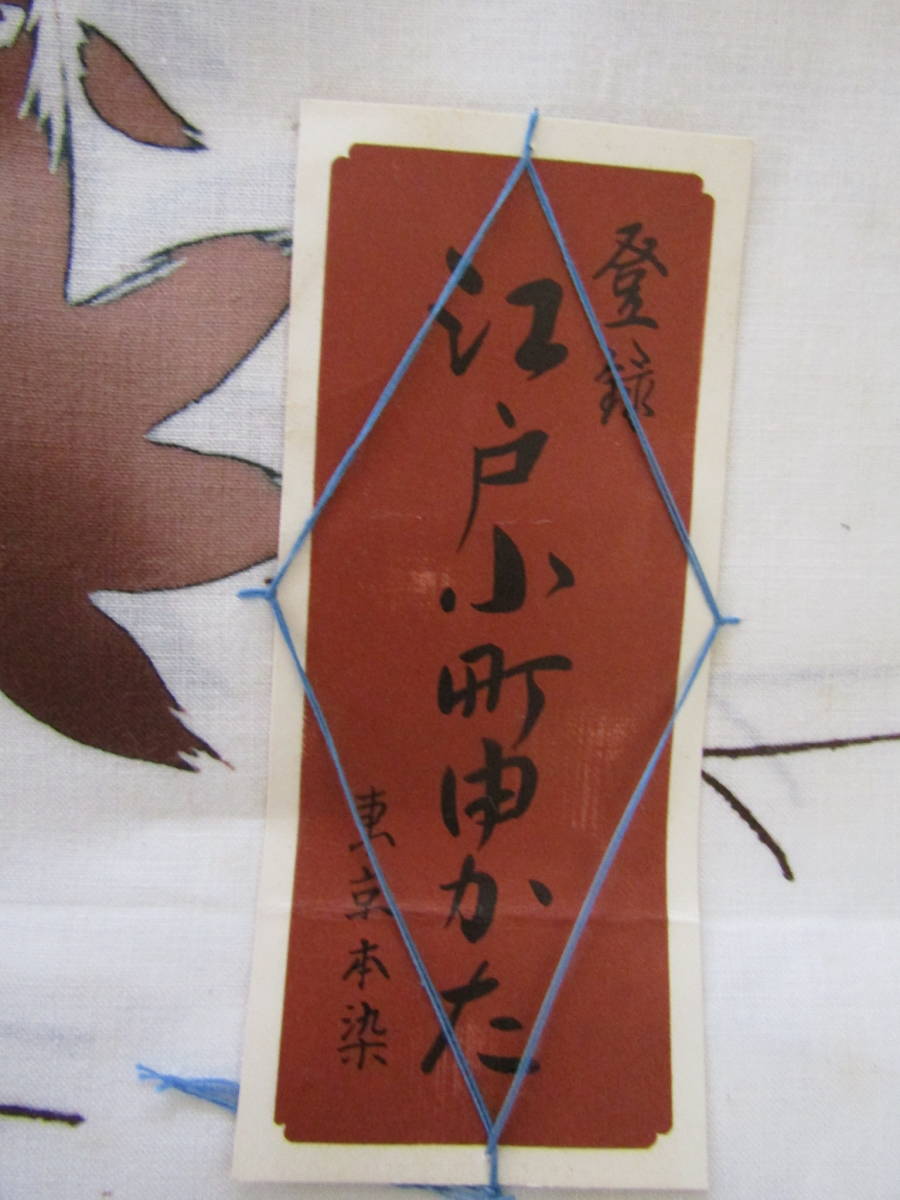 登録
江戸小町ゆかた
東京本染